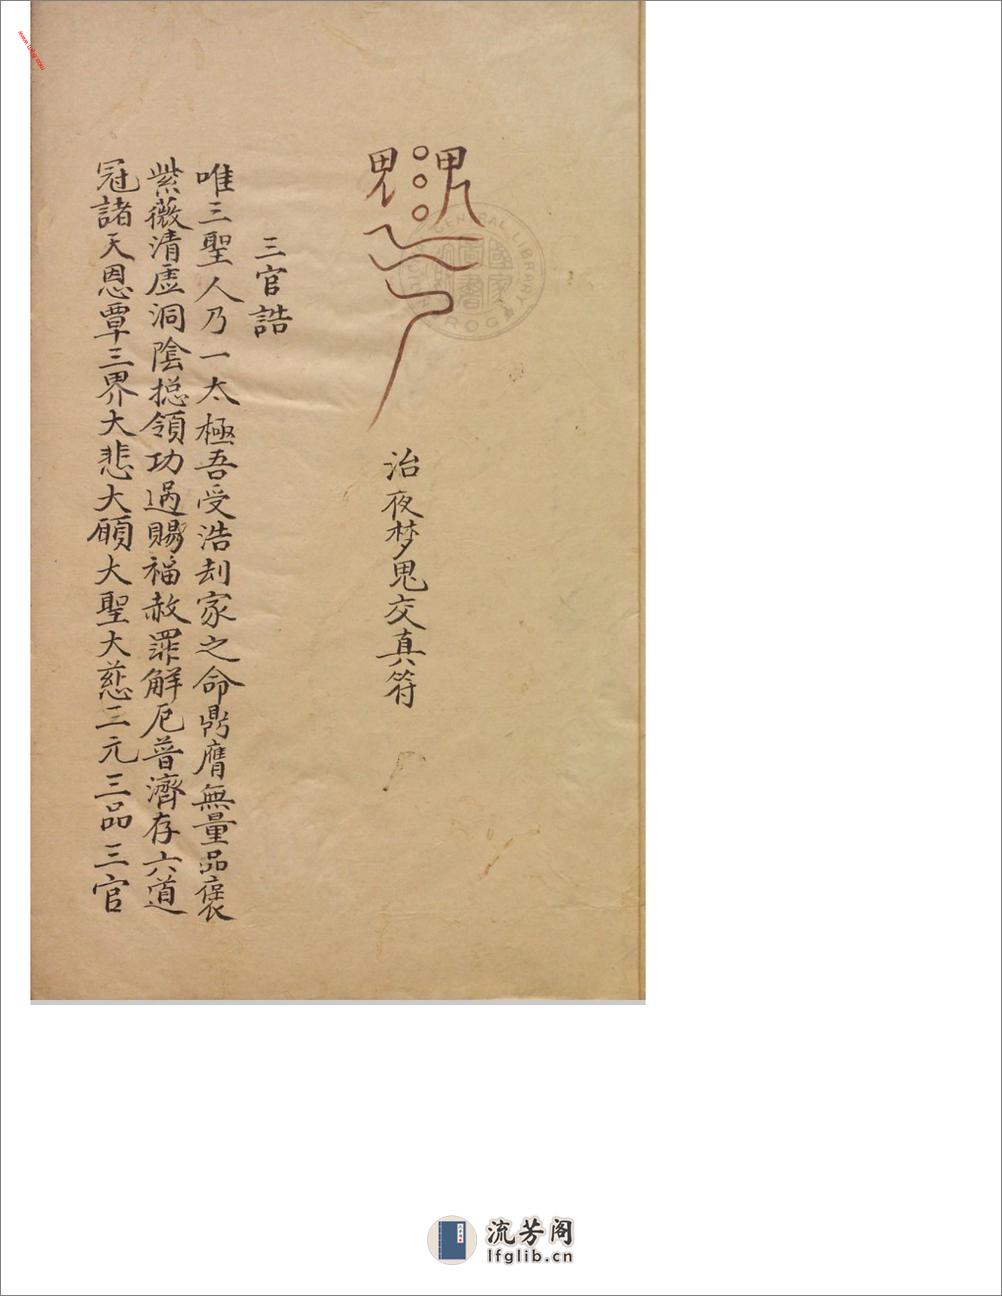 治夜梦鬼交真符
三官誥
唯三聖人乃一太極吾受浩刦家之命鼎膺無量品褒
紫薇清虛洞陰摠領功過賜福赦罪解厄普濟存六道
冠諸天恩覃三界大悲大願大聖大慈三元三品三官
流芳阁
lfglib.cn